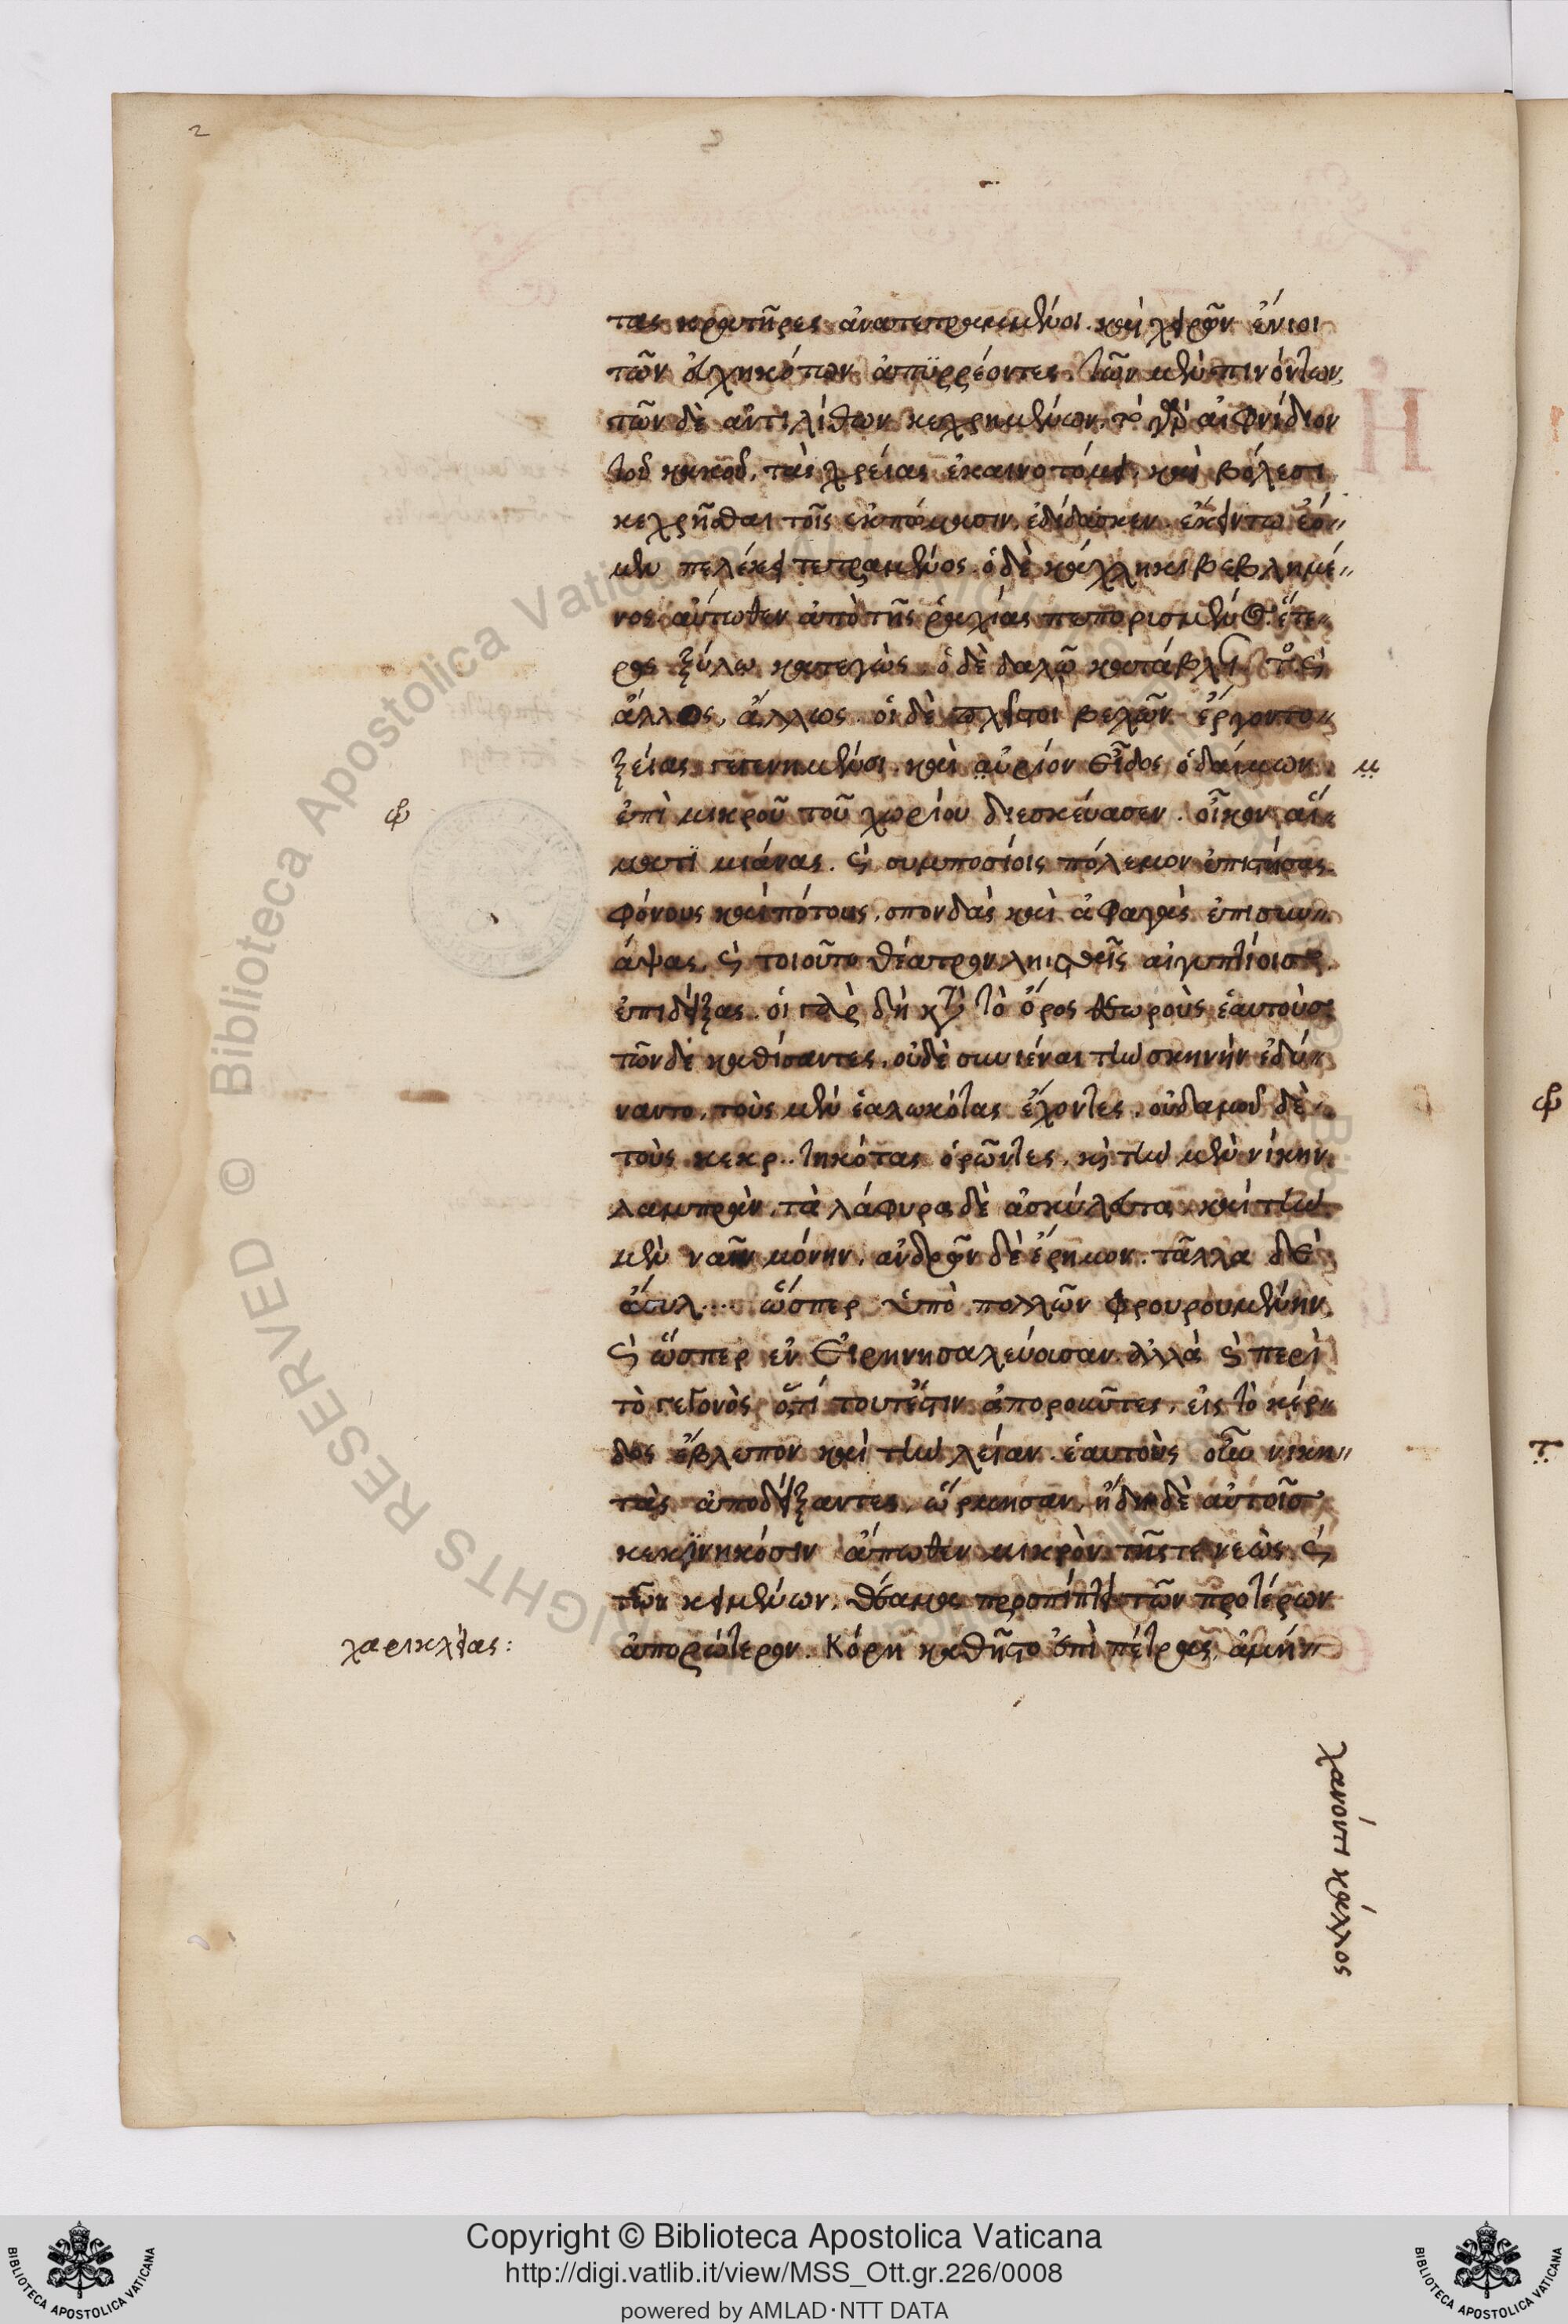 2
τας κρατῆρες ἀνατετραμμένοι. καὶ χειρῶν ἔνιοι
τῶν ἐσχηκότων ἀπορρέοντες. τῶν μὲν πινόντων,
τῶν δὲ ἀντὶ λίθων κεχρημένων. τὸ γὰρ αἰφνίδιον
τοῦ κακοῦ, τὰς χρείας ἐκαινοτόμει, καὶ βέλεσι
κεχρῆσθαι τοῖς ἐκπώμασιν, ἐδίδασκεν. ἔκειντο ὁ
μὲν πελέκει τετρωμένος. ὁ δὲ κάχληκι βεβλημέ-
νος αὐτόθεν ἀπὸ τῆς ῥαχίας πεπορισμένῳ. ἕτε-
ρος ξύλῳ κατεαγὼς. ὁ δὲ δαλῷ κατάφλεκτος καὶ
ἄλλος, ἄλλως. οἱ δὲ πλεῖστοι βελῶν ἔργον το-
ξείας γεγενημένοι. καὶ μυρίον εἶδος ὁ δαίμων
μ
ἐπὶ μικροῦ τοῦ χωρίου διεσκεύασεν. οἶνον αἵ-
ματι μιάνας. καὶ συμποσίοις πόλεμον ἐπιστήσας.
φόνους καὶ πότους, σπονδὰς καὶ σφαγὰς ἐπισυν-
άψας, καὶ τοιοῦτον θέατρον λῃσταῖς αἰγυπτίοις
ἐπιδείξας. οἱ γὰρ δὴ κατὰ τὸ ὄρος θεωροὺς ἑαυτοὺς
τῶνδε καθίσαντες, οὐδὲ συνιέναι τὴν σκηνὴν ἐδύ-
ναντο, τοὺς μὲν ἑαλωκότας ἔχοντες, οὐδαμοῦ δὲ
τοὺς κεκρ..τηκότας ὁρῶντες, καὶ τὴν μὲν νίκην
λαμπρὰν, τὰ λάφυρα δὲ ἀσκύλευτα καὶ τὴν
μὲν ναῦν μόνην, ἀνδρῶν δὲ ἔρημον. τἄλλα δὲ
ἄσυλ.... ὥσπερ ὑπὸ πολλῶν φρουρουμένην,
καὶ ὥσπερ ἐν εἰρήνῃ σαλεύουσαν. ἀλλὰ καὶ περὶ
τὸ γεγονὸς ὅ,τί ποτέ ἐστιν ἀποροῦντες, εἰς τὸ κέρ-
δος ἔβλεπον καὶ τὴν λείαν. ἑαυτοὺς οὖν νικη-
τὰς ἀποδείξαντες, ὥρμησαν, ἤδη δὲ αὐτοῖς
κεκινηκόσιν ἄπωθεν μικρὸν τῆς τε νεὼς καὶ
τῶν κειμένων, θέαμα προσπίπτει τῶν προτέρων
ἀπορώτερον. Κόρη καθῆστο ἐπὶ πέτρας, ἀμή-
χαρικλείας:
χανόν τι κάλλος
Copyright © Biblioteca Apostolica Vaticana
http://digi.vatlib.it/view/MSS_Ott.gr.226/0008
powered by AMLAD·NTT DATA